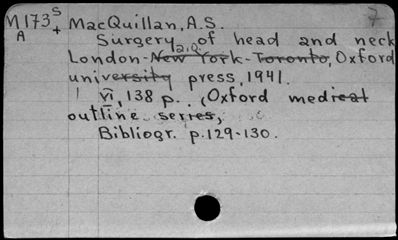 M173 S MacQuillan, A.S. 7
A + Surgery of head and neck
London - New York a.o. - Toronto, Oxford
university press, 1941.
VI, 138 p. (Oxford medical
outline series,
Bibliogr. p. 129-130.